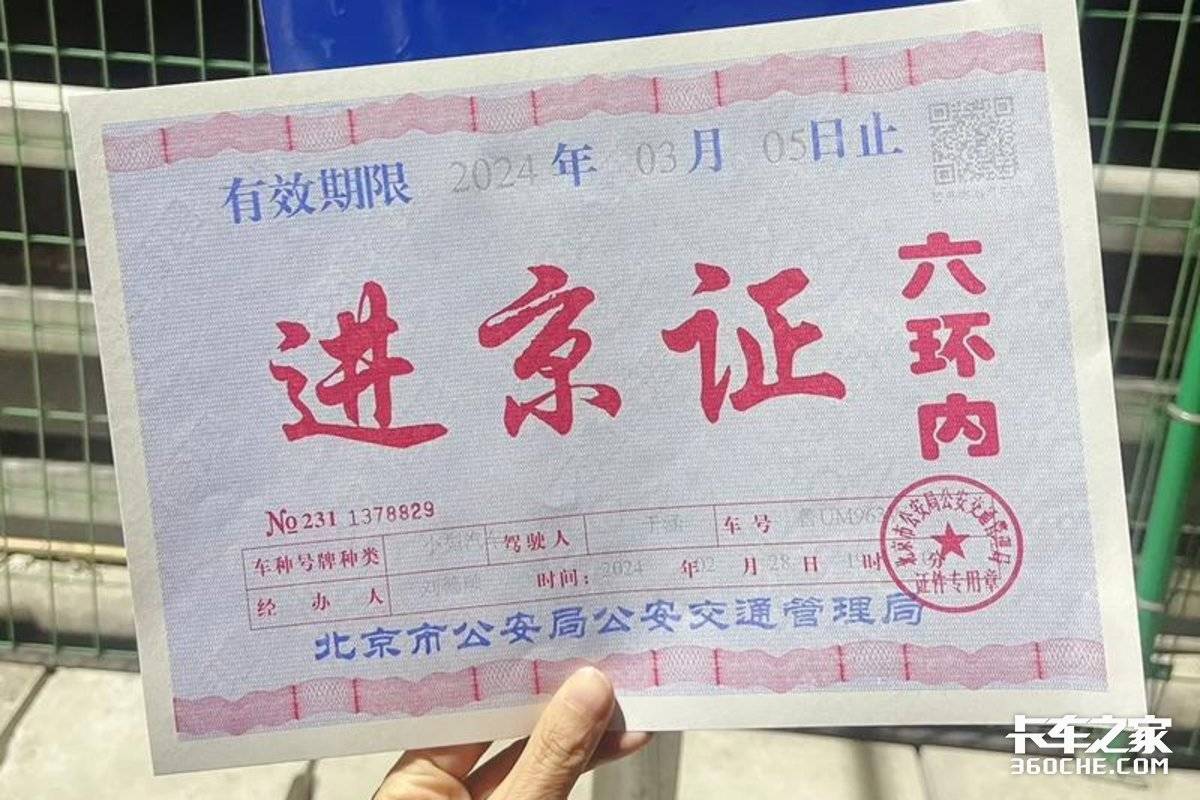 有效期限 2024 年 03 月 05 日止
进京证
六环内
No 231 1378829
车种号牌种类 驾驶人 车号
经办人 时间： 2024 年 02 月 28 日 时 分
北京市公安局公安交通管理局
北京市公安局公安交通管理局
证件专用章
卡车之家
360CHE.COM